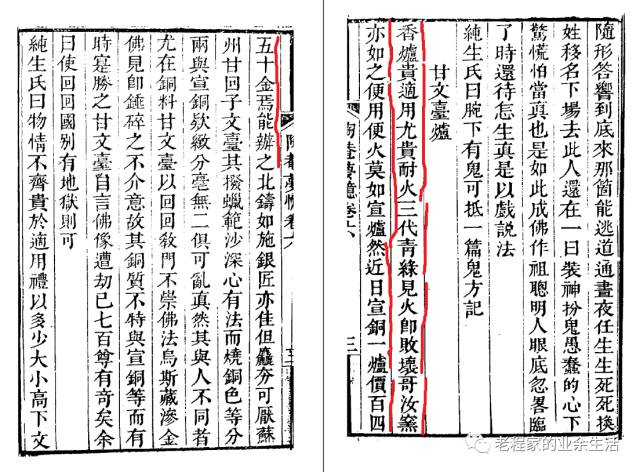 隨形答響到底來那箇能逃道通晝夜任生生死死換
姓移名下塲去此人還在一日裝神扮鬼愚蠢的心下
驚慌怕當真也是如此成佛作祖聰明人眼底忽畧臨
了時還待怎生真是以戲說法
純生氏曰腕下有鬼可抵一篇鬼方記
甘文臺爐
香爐貴適用尤貴耐火三代青綠見火即敗壞哥汝窰
亦如之便用便火莫如宣爐然近日宣銅一爐價百四
陶菴夢憶卷六
三
五十金焉能辦之北鑄如施銀匠亦佳但麤夯可厭蘇
州甘回子文臺其撥蠟範沙深心有法而燒銅色等分
兩與宣銅欵緻分毫無二俱可亂真然其與人不同者
尤在銅料甘文臺以回回敎門不崇佛法烏斯藏滲金
佛見即錘碎之不介意故其銅質不特與宣銅等而有
時寔勝之甘文臺自言佛像遭刧已七百尊有奇矣余
曰使回回國别有地獄則可
純生氏曰物情不齊貴於適用禮以多少大小高下文
老程家的业余生活